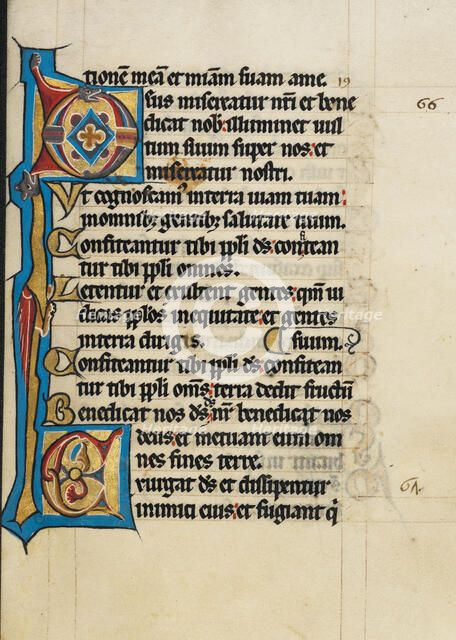 tionē meā et miam̄ suam a me. 19
Deus misereatur nr̄i et bene 66
dicat nob: illuminet uul
tum suum super nos: et
misereatur nostri.
Ut cognoscam̄ in terra uiam tuam:
in omnib; gentib; salutare tuum.
Confiteantur tibi ppl̄i ds: confitean
tur tibi ppl̄i omnes.
Letentur et exultent gentes: qm̄ iu
dicas ppl̄os in equitate: et gentes
in terra dirigis. suum.
Confiteantur tibi ppl̄i ds: confitean
tur tibi ppl̄i om̄s: terra dedit fructū
Benedicat nos ds ds nr̄: benedicat nos
deus: et metuant eum om
nes fines terre.
Exurgat ds et dissipentur 67.
inimici eius: et fugiant q̄
Heritage
Heritage
Heritage
Heritage